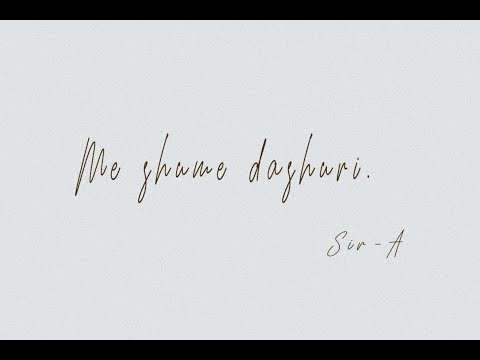 Me ghume daghuri.
Sir-A